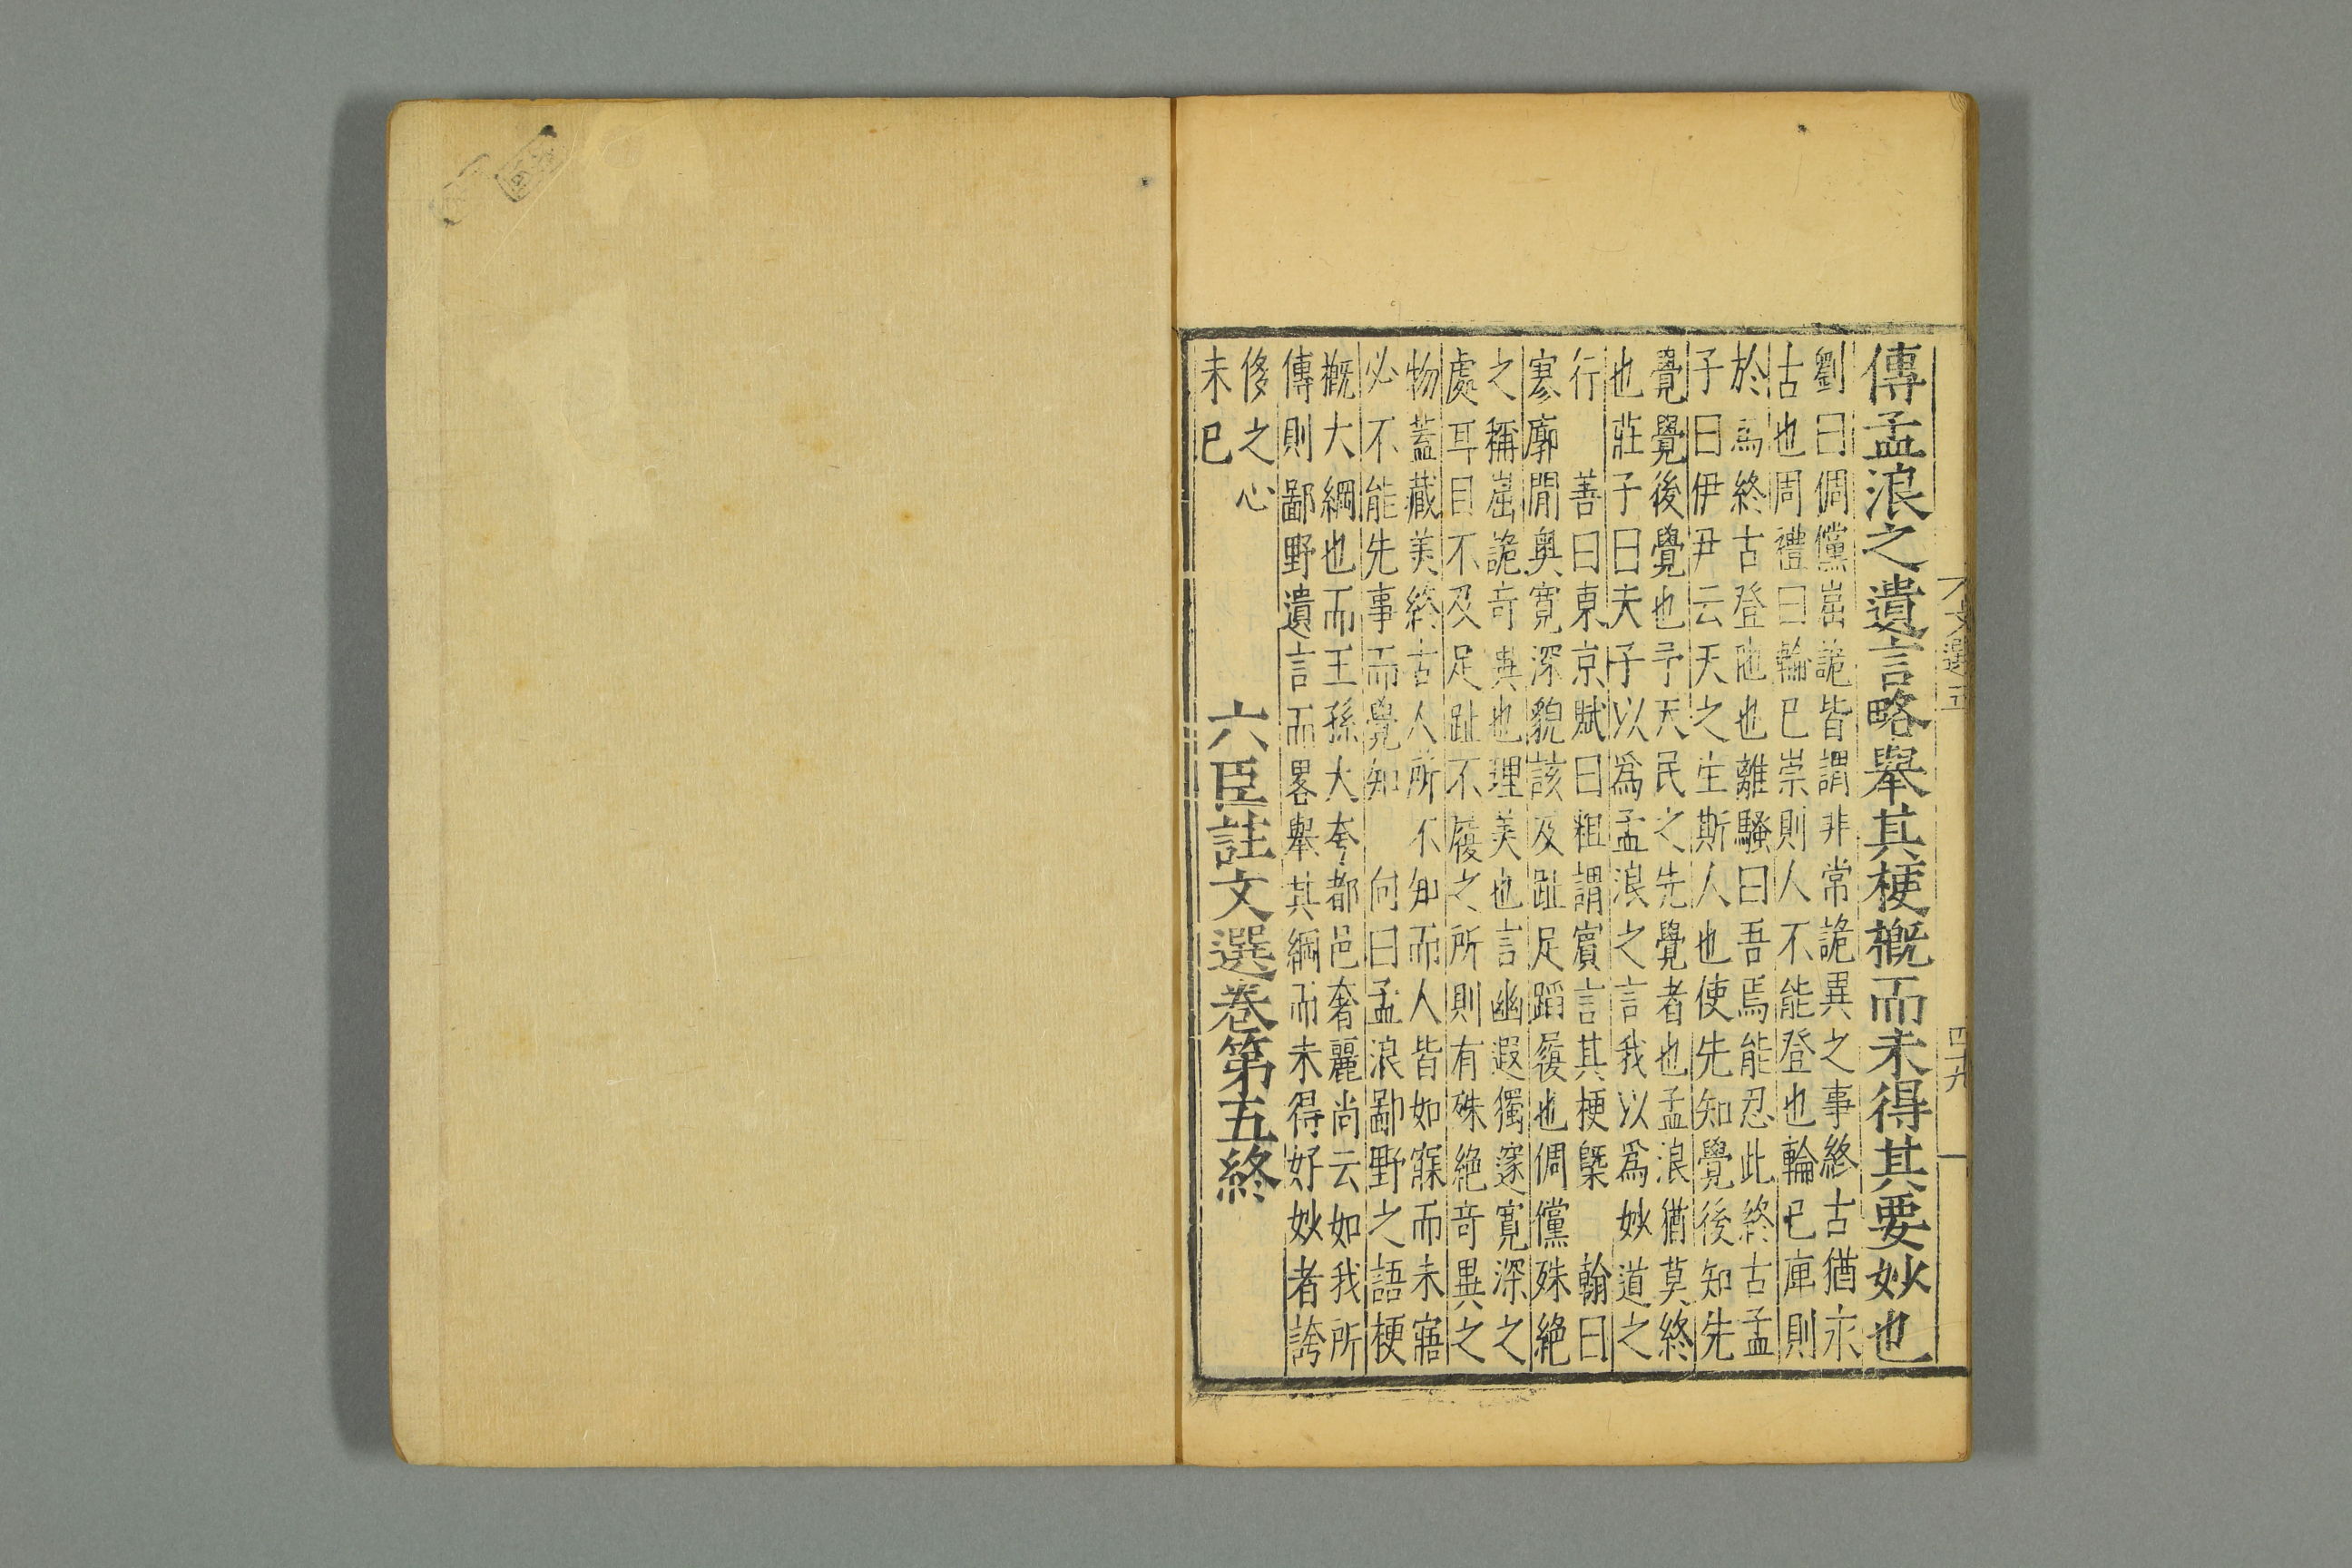 傳孟浪之遺言略舉其梗概而未得其要妙也
劉曰倜儻崫詭皆謂非常詭異之事終古猶永
古也周禮曰輪已崇則人不能登也輪已庳則
於馬終古登阤也離騷曰吾焉能忍此終古孟
子曰伊尹云天之生斯人也使先知覺後知先
覺覺後覺也予天民之先覺者也孟浪猶莫終
也莊子曰夫子以爲孟浪之言我以爲妙道之
行 善曰東京賦曰粗謂賓言其梗槩 翰曰
寥廓閒奧寬深貌該及趾足蹈履也倜儻殊絶
之稱崫詭奇異也理美也言幽遐獨邃寬深之
處耳目不及足趾不履之所則有殊絶奇異之
物蓋藏美終古人所不知而人皆如寐而未寤
必不能先事而覺知 向曰孟浪鄙野之語梗
概大綱也而王孫大夸都邑奢麗尚云如我所
傳則鄙野遺言而畧舉其綱而未得好妙者誇
侈之心
未已
六臣註文選卷第五終
文選五
四十九